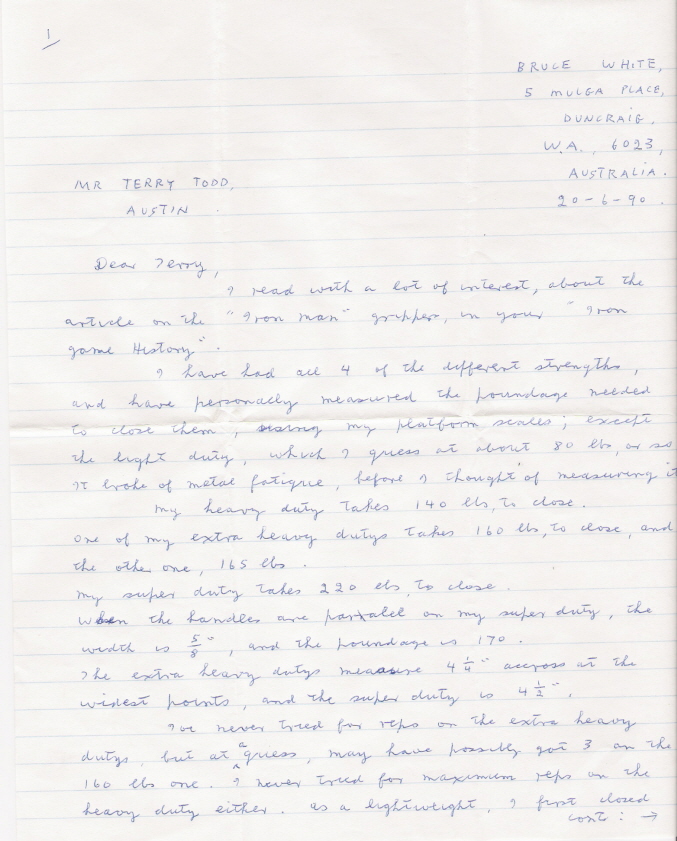 1
BRUCE WHITE,
5 MULGA PLACE,
DUNCRAIG,
W.A., 6023,
AUSTRALIA.
20-6-90.
MR TERRY TODD,
AUSTIN.
Dear Terry,
I read with a lot of interest, about the
article on the "Iron man" gripper, in your "Iron
game History".
I have had all 4 of the different strengths,
and have personally measured the poundage needed
to close them, using my platform scales; except
the light duty, which I guess at about 80 lbs, or so
It broke of metal fatigue, before I thought of measuring it
My heavy duty takes 140 lbs, to close.
One of my extra heavy dutys takes 160 lbs, to close, and
the other one, 165 lbs.
My super duty takes 220 lbs, to close.
When the handles are parallel on my super duty, the
width is 5/8", and the poundage is 170.
The extra heavy dutys measure 4 1/4" accross at the
widest points, and the super duty is 4 1/2".
I've never tried for reps on the extra heavy
dutys, but at a guess, may have possibly got 3 on the
160 lbs one. I never tried for maximum reps on the
heavy duty either. As a lightweight, I first closed
cont: →